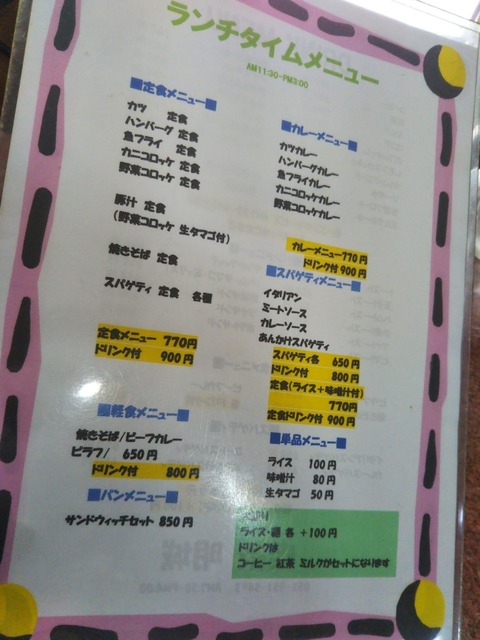 ランチタイムメニュー
AM11:30-PM3:00
■定食メニュー■
カツ 定食
ハンバーグ 定食
魚フライ 定食
カニコロッケ 定食
野菜コロッケ 定食
豚汁 定食
(野菜コロッケ 生タマゴ付)
焼きそば 定食
スパゲティ 定食 各種
定食メニュー 770円
ドリンク付 900円
■軽食メニュー■
焼きそば/ビーフカレー
ピラフ/ 650円
ドリンク付 800円
■パンメニュー■
サンドウィッチセット 850円
■カレーメニュー■
カツカレー
ハンバーグカレー
魚フライカレー
カニコロッケカレー
野菜コロッケカレー
カレーメニュー770円
ドリンク付 900円
■スパゲティメニュー■
イタリアン
ミートソース
カレーソース
あんかけスパゲティ
スパゲティ各 650円
ドリンク付 800円
定食(ライス+味噌汁付)
770円
定食ドリンク付 900円
■単品メニュー■
ライス 100円
味噌汁 80円
生タマゴ 50円
ライス・麺 各 +100円
ドリンクは
コーヒー 紅茶 ミルクがセットになります